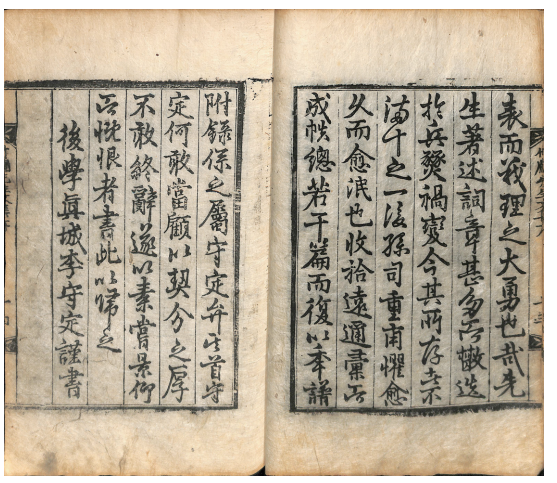 表而義理之大勇也哉先
生著述詞章甚多而散迭
於兵燹禍變今其所存
滿十之一後孫司重甫懼愈
久而愈泯也收拾遠邇彙而
成帙總若干篇而復以年譜
附錄係之屬守定弁其首守
定何敢當顧以契分之厚
不敢終辭遂以素嘗景仰
而慨恨者書此以歸之
後學眞城李守定謹書